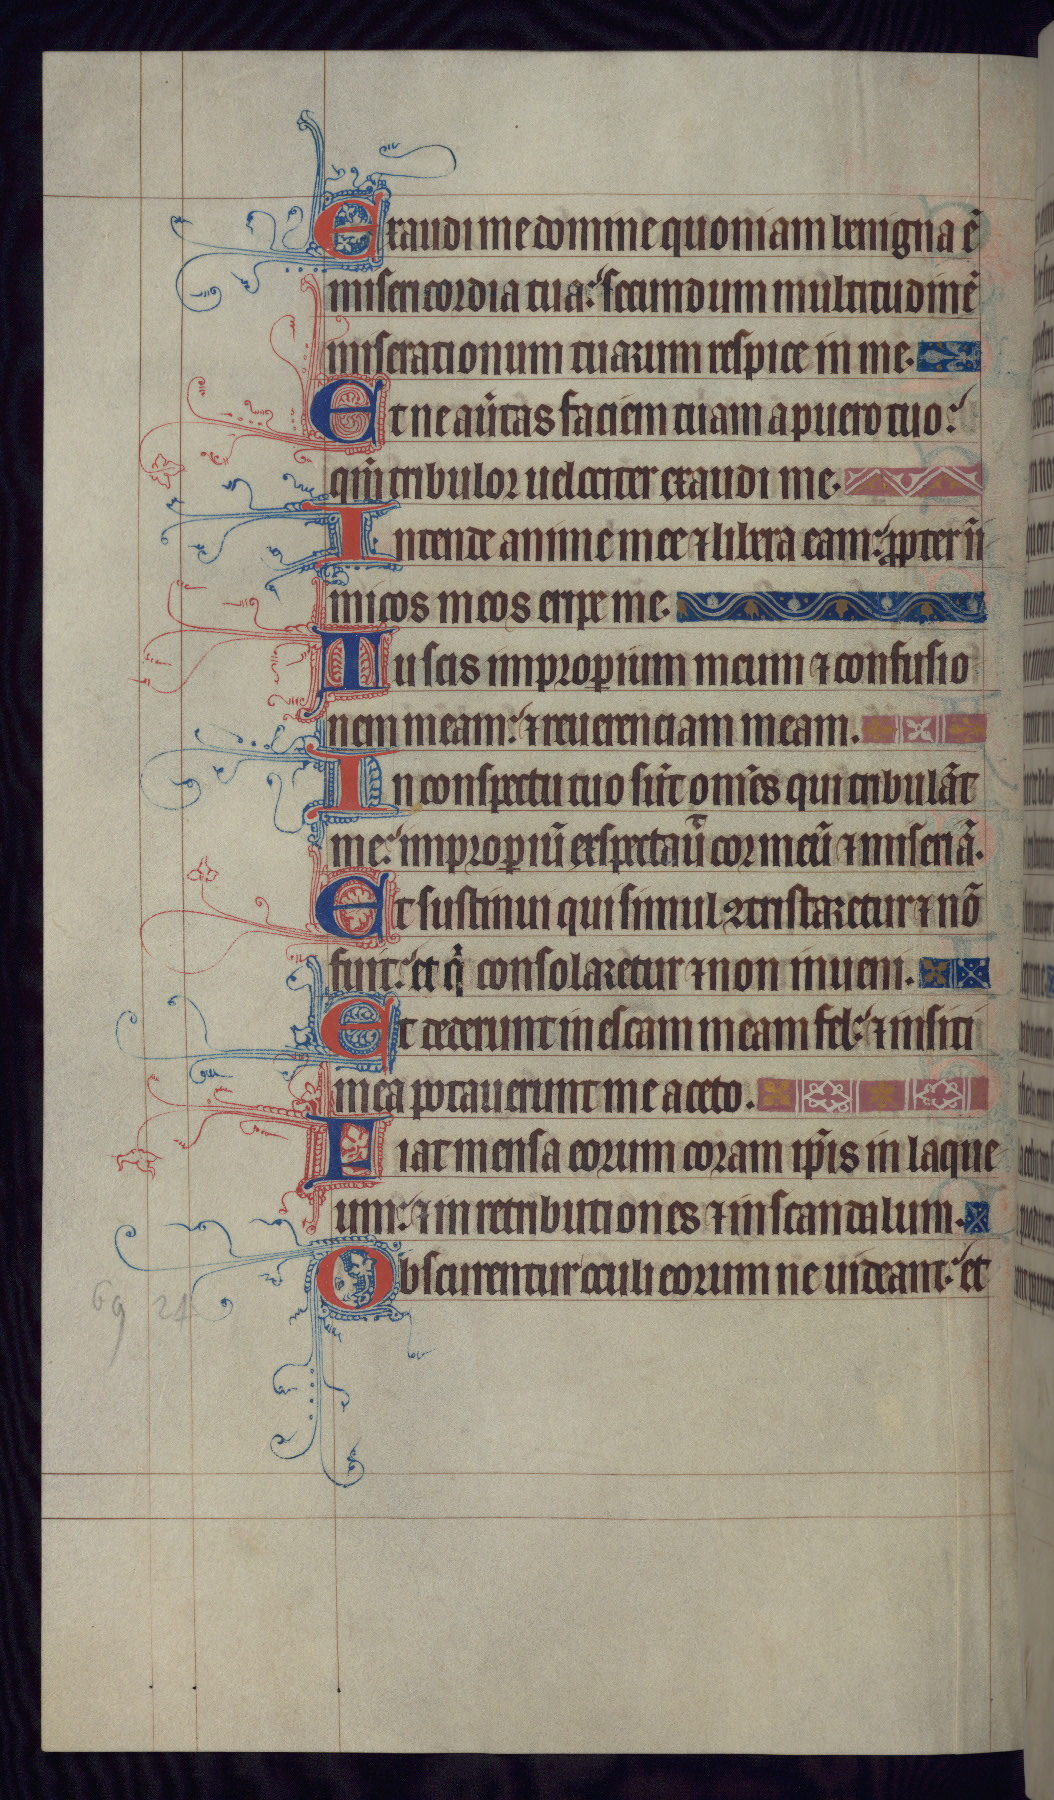 Exaudi me domine quoniam benigna ē
misericordia tua: secundum multitudinē
miserationum tuarum respice in me.
Et ne aūtas faciem tuam a puero tuo:
qm̄ tribulor uelociter exaudi me.
Intende anime mee ⁊ libera eam: ꝓpter ini
micos meos eripe me.
Tu scis improperium meum ⁊ confusio
nem meam: ⁊ reuerenciam meam.
In conspectu tuo sūt om̄es qui tribulāt
me: improperiū exspectauͬ cor meū ⁊ miseriā.
Et sustinui qui simul ꝯtristaretur ⁊ nō
fuit: et qͥ consolaretur ⁊ non inueni.
Et dederunt in escam meam fel: ⁊ in siti
mea potauerunt me aceto.
Fiat mensa eorum coram ip̄is in laque
um: ⁊ in retributiones ⁊ in scandalum.
Obscurentur oculi eorum ne uideant: et
69 21